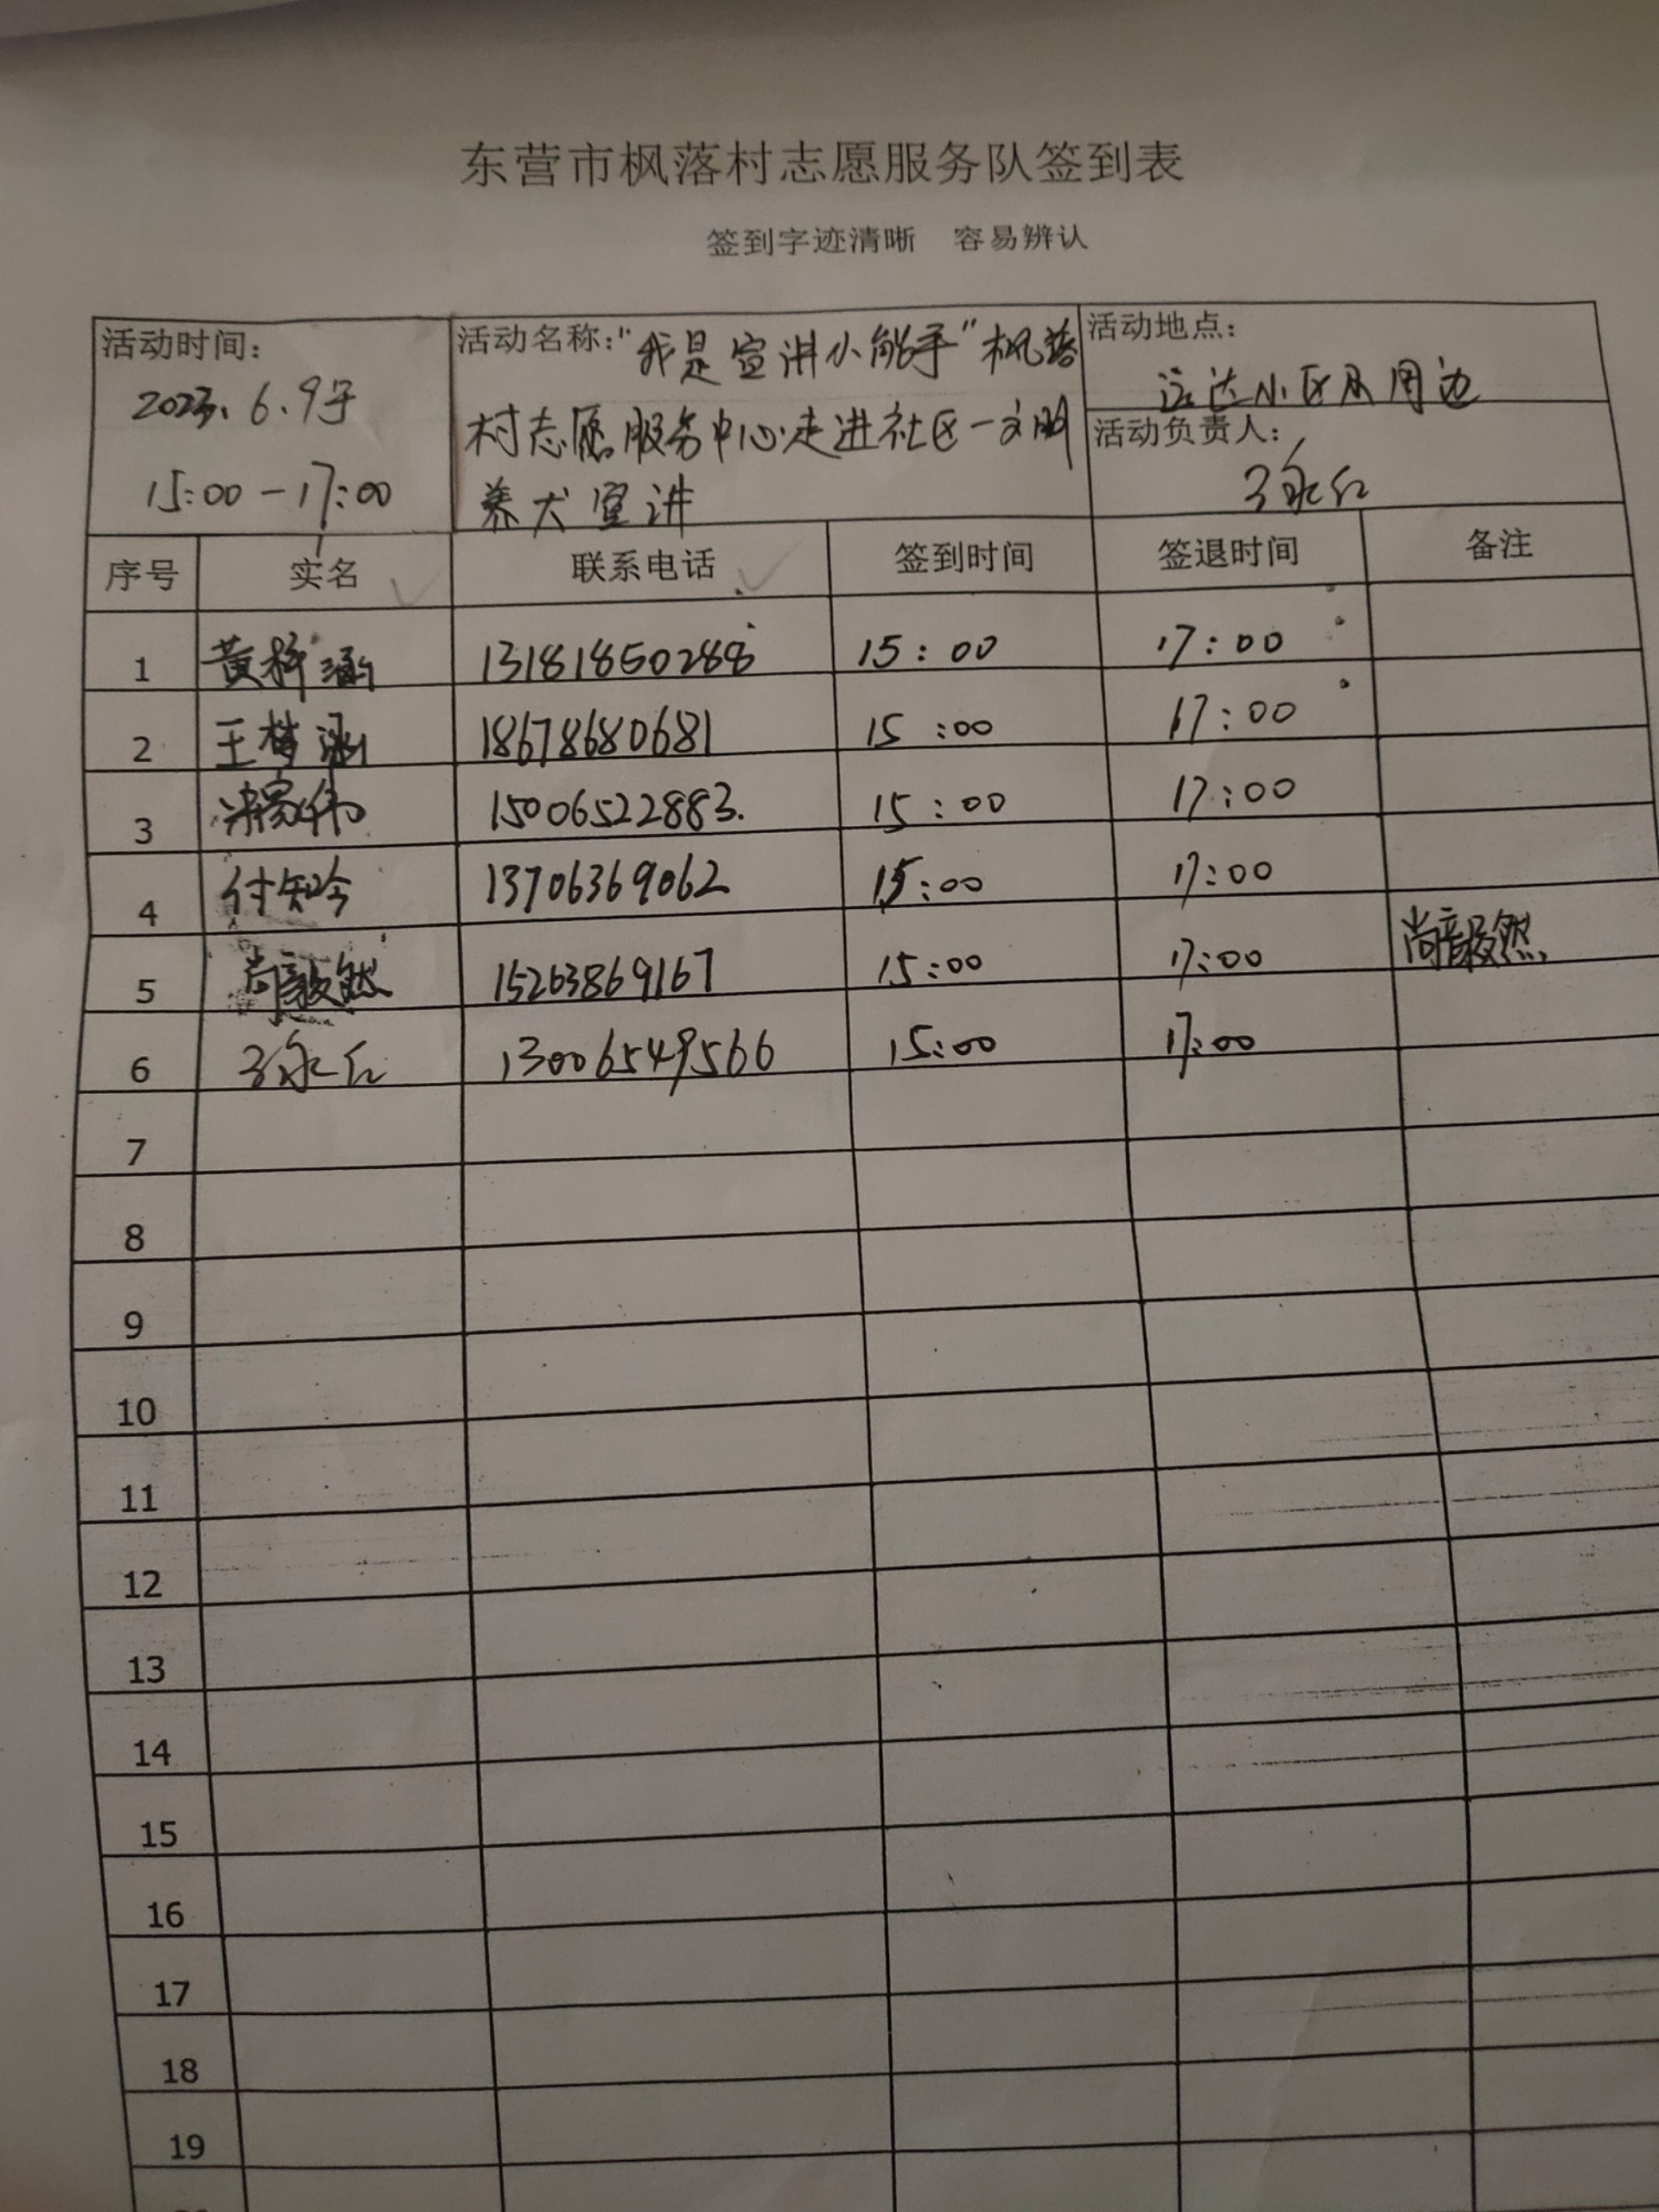 东营市枫落村志愿服务队签到表
签到字迹清晰 容易辨认
活动时间:
2023.6.9号
15:00-17:00
活动名称:"我是宣讲小能手"枫落
村志愿服务中心走进社区-文明
养犬宣讲
活动地点:
远达小区及周边
活动负责人:
永红
序号 实名 联系电话 签到时间 签退时间 备注
1 黄梓涵 13181850288 15:00 17:00
2 王梦涵 18678680681 15:00 17:00
3 伟 15006522883. 15:00 17:00
4 付知吟 13706369062 15:00 17:00
5 尚毅然 15263869167 15:00 17:00 尚毅然
6 永红 13006549566 15:00 17:00
7
8
9
10
11
12
13
14
15
16
17
18
19